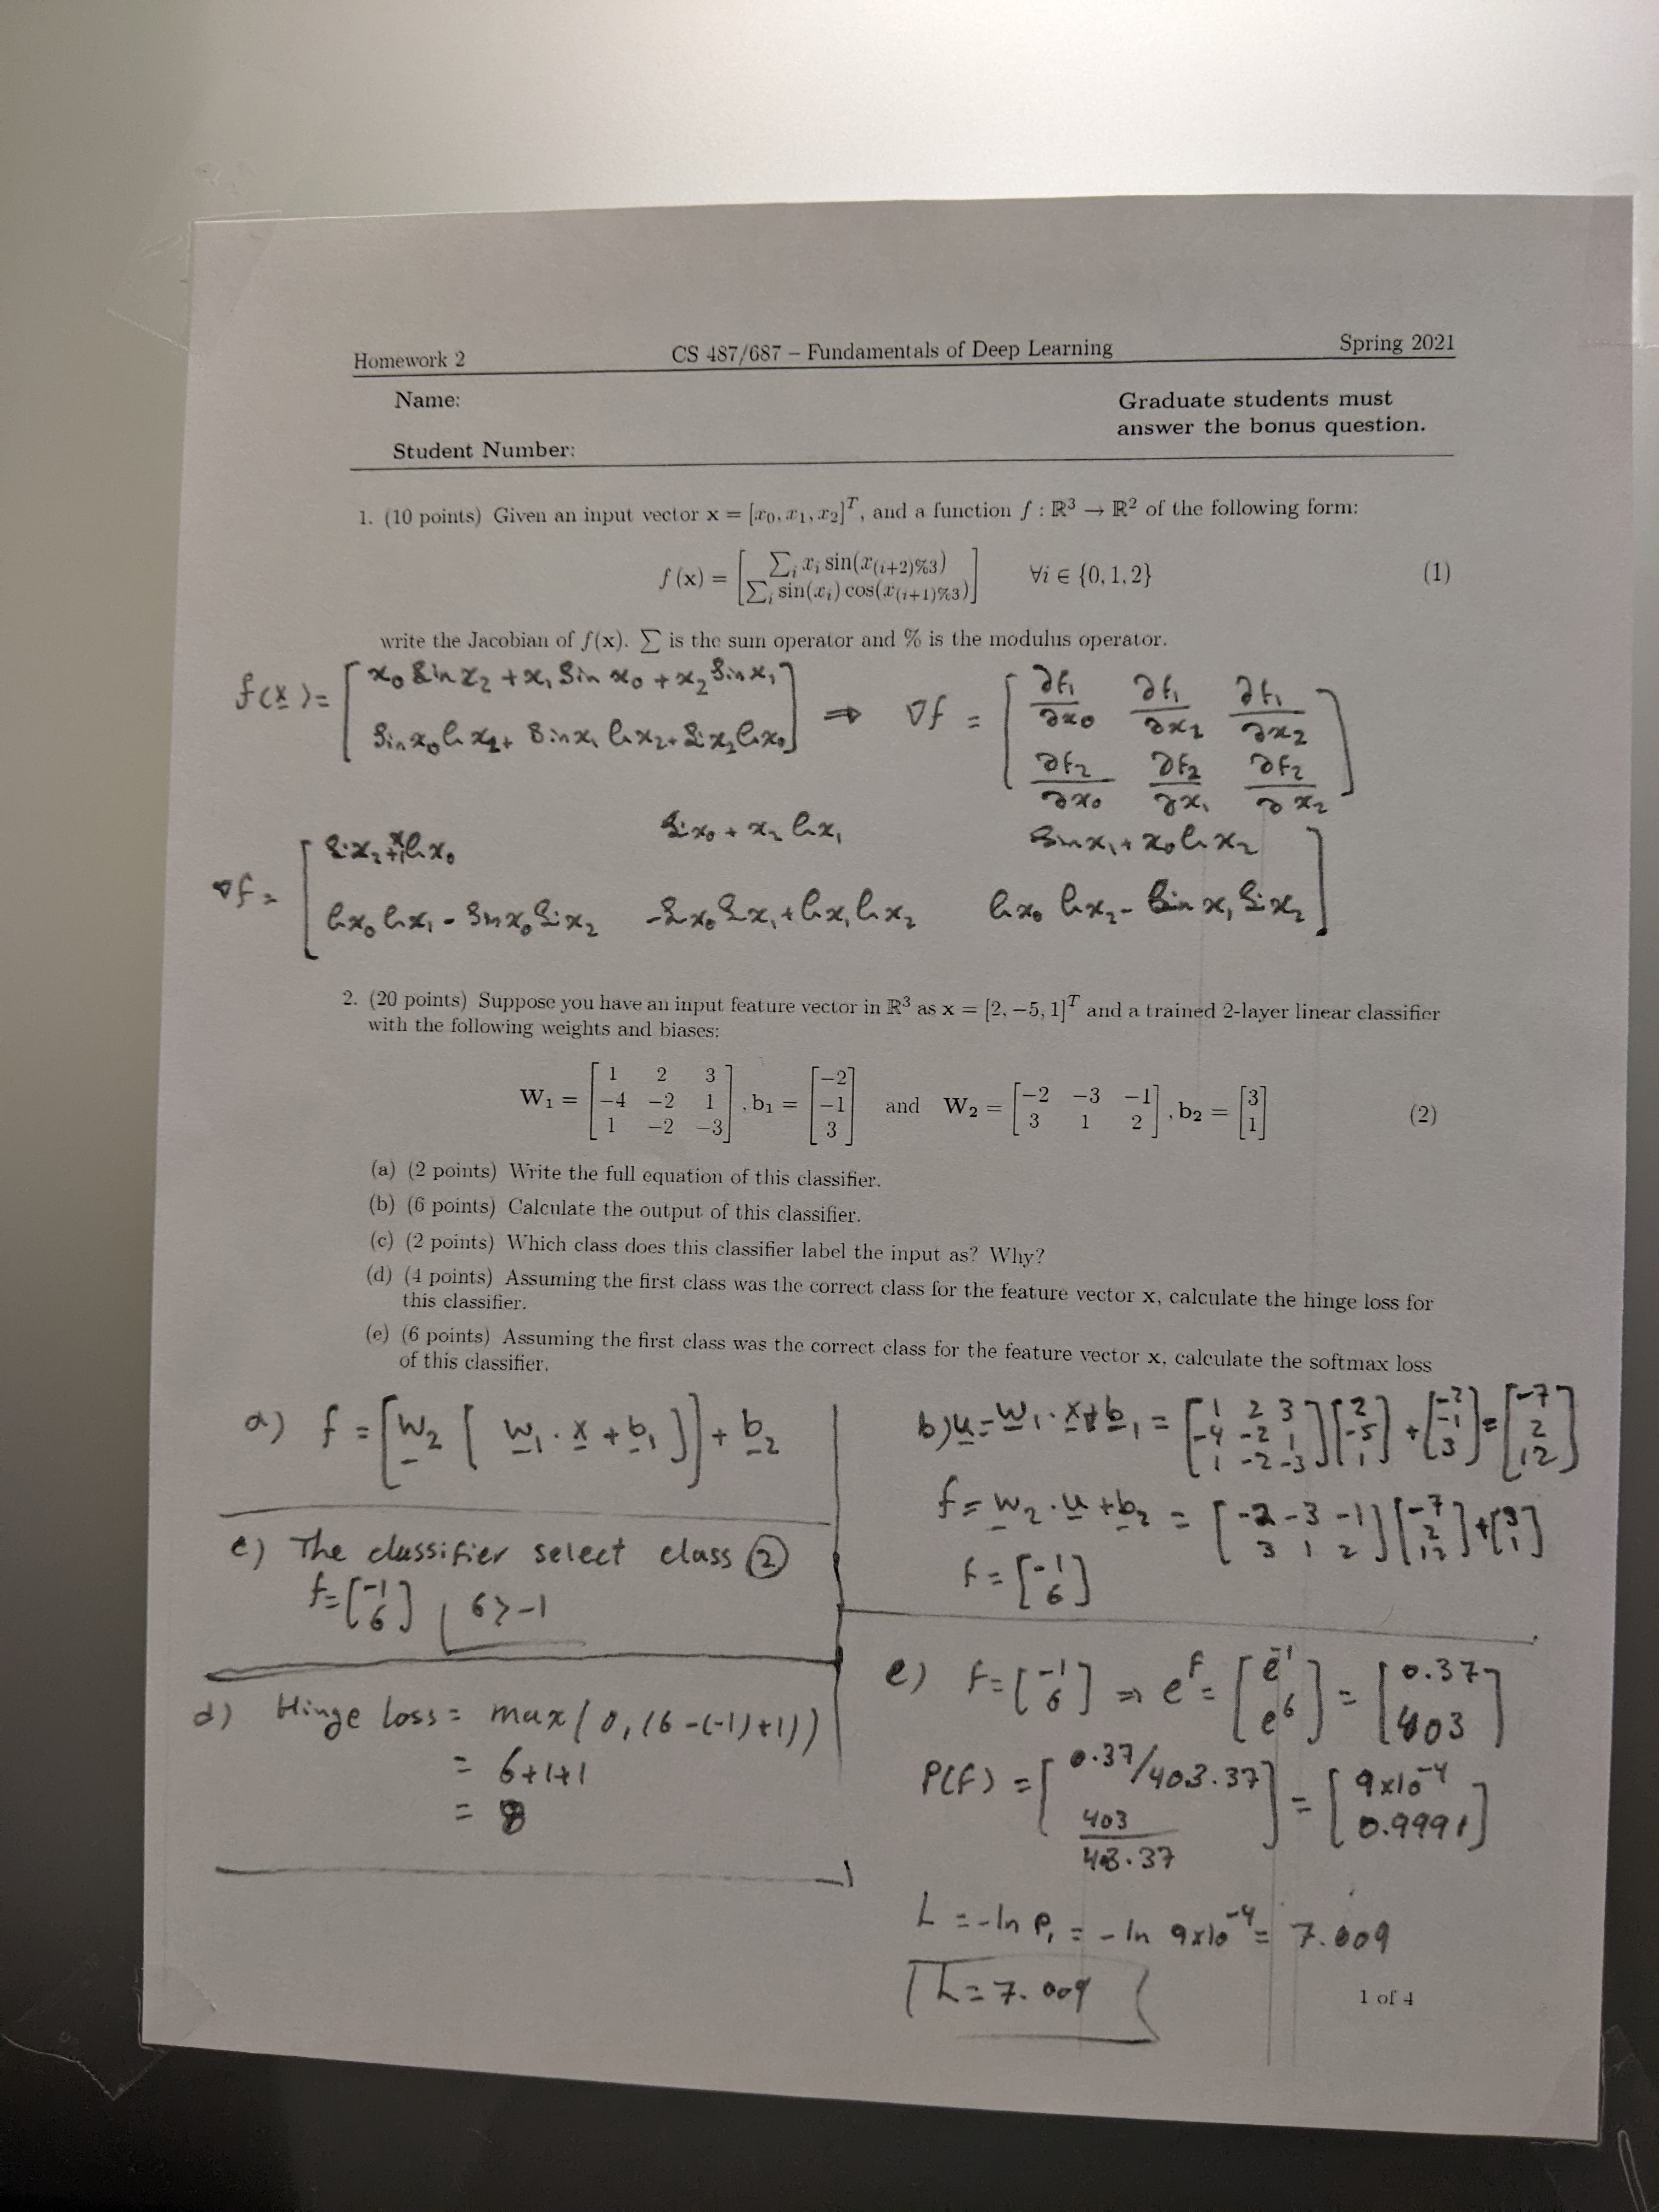 Homework 2 CS 487/687 – Fundamentals of Deep Learning Spring 2021
Name: Graduate students must
answer the bonus question.
Student Number:
1. (10 points) Given an input vector x = [x₀, x₁, x₂]ᵀ, and a function f : ℝ³ → ℝ² of the following form:
f(x) = [ ∑ᵢ xᵢ sin(x₍ᵢ₊₂₎%₃) ; ∑ᵢ sin(xᵢ) cos(x₍ᵢ₊₁₎%₃) ] ∀i ∈ {0, 1, 2} (1)
write the Jacobian of f(x). ∑ is the sum operator and % is the modulus operator.
f(x) = [ x₀ Sin x₂ + x₁ Sin x₀ + x₂ Sin x₁ ⇒ ∇f = [ ∂f₁/∂x₀ ∂f₁/∂x₁ ∂f₁/∂x₂
∂f₂/∂x₀ ∂f₂/∂x₁ ∂f₂/∂x₂ ]
∇f =
2. (20 points) Suppose you have an input feature vector in ℝ³ as x = [2, −5, 1]ᵀ and a trained 2-layer linear classifier
with the following weights and biases:
W₁ = [ 1 2 3 ; −4 −2 1 ; 1 −2 −3 ], b₁ = [ −2 ; −1 ; 3 ] and W₂ = [ −2 −3 −1 ; 3 1 2 ], b₂ = [ 3 ; 1 ] (2)
(a) (2 points) Write the full equation of this classifier.
(b) (6 points) Calculate the output of this classifier.
(c) (2 points) Which class does this classifier label the input as? Why?
(d) (4 points) Assuming the first class was the correct class for the feature vector x, calculate the hinge loss for
this classifier.
(e) (6 points) Assuming the first class was the correct class for the feature vector x, calculate the softmax loss
of this classifier.
a) f = [ W₂ [ W₁ · x + b₁ ] ] + b₂
b) u = W₁ · x + b₁ = [ 1 2 3 ; −4 −2 1 ; 1 −2 −3 ] [ 2 ; −5 ; 1 ] + [ −2 ; −1 ; 3 ] = [ −7 ; 2 ; 12 ]
f = W₂ · u + b₂ = [ −2 −3 −1 ; 3 1 2 ] [ −7 ; 2 ; 12 ] + [ 3 ; 1 ]
f = [ −1 ; 6 ]
c) The classifier select class 2
f = [ −1 ; 6 ] 6 > −1
d) Hinge loss = max ( 0, (6 − (−1) + 1))
= 6+1+1
= 8
e) f = [ −1 ; 6 ] ⇒ eᶠ = [ e⁻¹ ; e⁶ ] = [ 0.37 ; 403 ]
P(f) = [ 0.37/403.37 ; 403/403.37 ] = [ 9x10⁻⁴ ; 0.9991 ]
L = −ln P₁ = − ln 9x10⁻⁴ = 7.009
L = 7.009
1 of 4